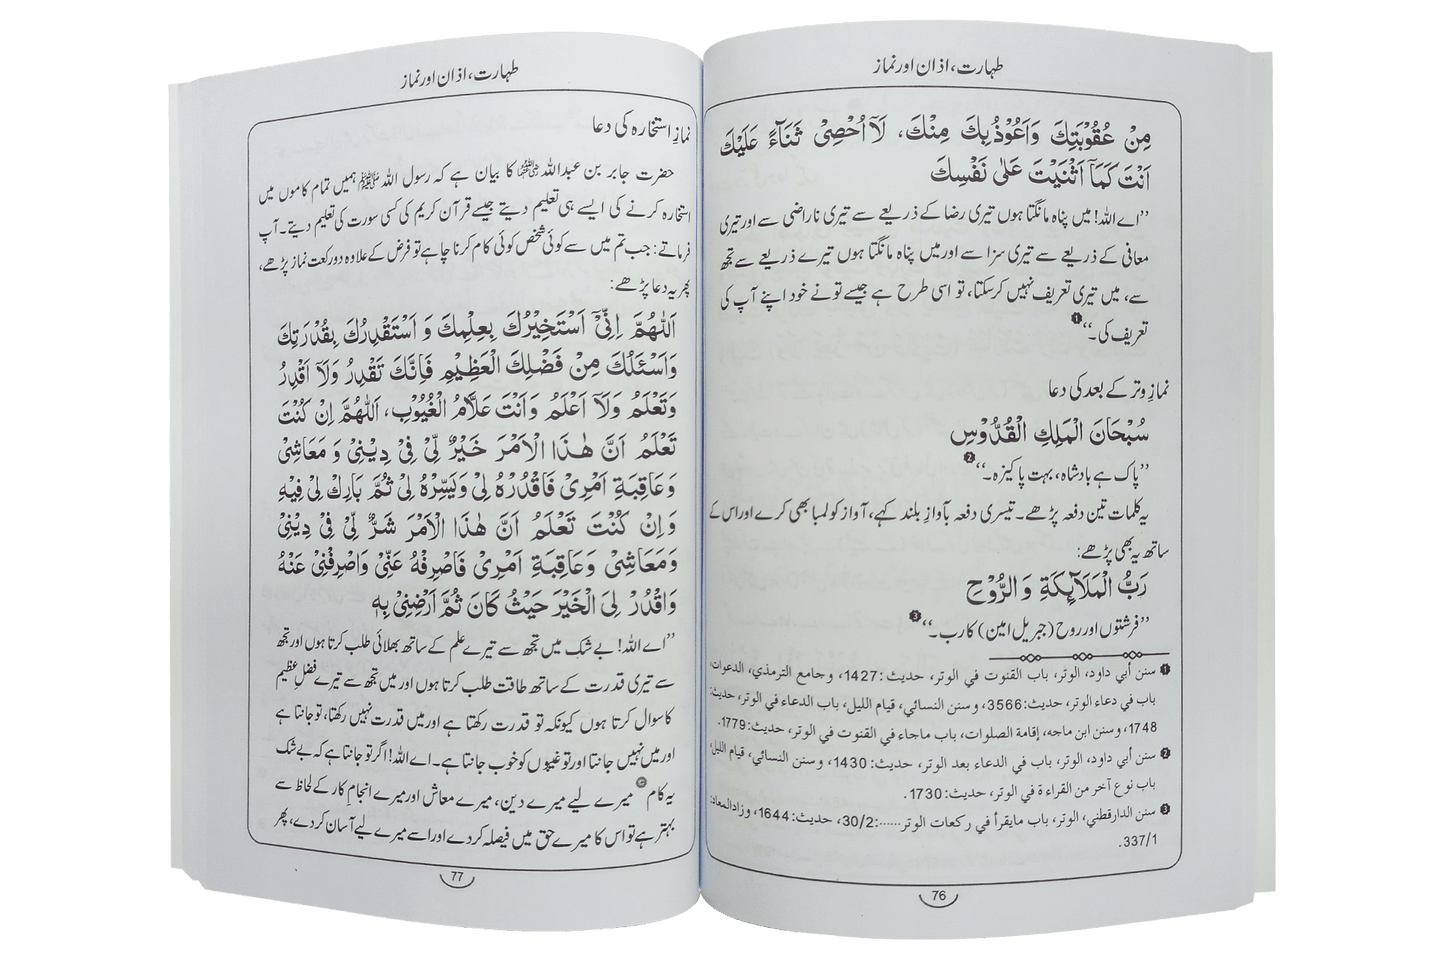 طہارت، اذان اور نماز
مِنْ عُقُوْبَتِكَ وَاَعُوْذُبِكَ مِنْكَ، لَآ اُحْصِيْ ثَنَآءً عَلَيْكَ
اَنْتَ كَمَآ اَثْنَيْتَ عَلٰى نَفْسِكَ
”اے اللہ! میں پناہ مانگتا ہوں تیری رضا کے ذریعے سے تیری ناراضی سے اور تیری
معافی کے ذریعے سے تیری سزا سے اور میں پناہ مانگتا ہوں تیرے ذریعے سے تجھ
سے، میں تیری تعریف نہیں کرسکتا، تو اسی طرح ہے جیسے تو نے خود اپنے آپ کی
تعریف کی۔“ ❶
نمازِ وتر کے بعد کی دعا
سُبْحَانَ الْمَلِكِ الْقُدُّوْسِ
”پاک ہے بادشاہ، بہت پاکیزہ۔“ ❷
یہ کلمات تین دفعہ پڑھے۔ تیسری دفعہ بآوازِ بلند کہے، آواز کو لمبا بھی کرے اور اس کے
ساتھ یہ بھی پڑھے:
رَبُّ الْمَلَآئِكَةِ وَالرُّوْحِ
”فرشتوں اور روح (جبریل امین) کا رب۔“ ❸
❶ سنن أبي داود، الوتر، باب القنوت في الوتر، حديث: 1427، وجامع الترمذي، الدعوات،
باب في دعاء الوتر، حديث: 3566، وسنن النسائي، قيام الليل، باب الدعاء في الوتر، حديث:
1748، وسنن ابن ماجه، إقامة الصلوات، باب ماجاء في القنوت في الوتر، حديث: 1779.
❷ سنن أبي داود، الوتر، باب في الدعاء بعد الوتر، حديث: 1430، وسنن النسائي، قيام الليل،
باب نوع آخر من القراءة في الوتر، حديث: 1730.
❸ سنن الدارقطني، الوتر، باب مايقرأ في ركعات الوتر......: 30/2، حديث: 1644، وزادالمعاد:
337/1.
76
طہارت، اذان اور نماز
نمازِ استخارہ کی دعا
حضرت جابر بن عبداللہ ؓ کا بیان ہے کہ رسول اللہ ﷺ ہمیں تمام کاموں میں
استخارہ کرنے کی ایسے ہی تعلیم دیتے جیسے قرآن کریم کی کسی سورت کی تعلیم دیتے۔ آپ
فرماتے: جب تم میں سے کوئی شخص کوئی کام کرنا چاہے تو فرض کے علاوہ دو رکعت نماز پڑھے،
پھر یہ دعا پڑھے:
اَللّٰهُمَّ اِنِّيْٓ اَسْتَخِيْرُكَ بِعِلْمِكَ وَ اَسْتَقْدِرُكَ بِقُدْرَتِكَ
وَاَسْئَلُكَ مِنْ فَضْلِكَ الْعَظِيْمِ فَاِنَّكَ تَقْدِرُ وَلَآ اَقْدِرُ
وَتَعْلَمُ وَلَآ اَعْلَمُ وَاَنْتَ عَلَّامُ الْغُيُوْبِ، اَللّٰهُمَّ اِنْ كُنْتَ
تَعْلَمُ اَنَّ هٰذَا الْاَمْرَ خَيْرٌ لِّيْ فِيْ دِيْنِيْ وَ مَعَاشِيْ
وَعَاقِبَةِ اَمْرِيْ فَاقْدُرْهُ لِيْ وَيَسِّرْهُ لِيْ ثُمَّ بَارِكْ لِيْ فِيْهِ
وَاِنْ كُنْتَ تَعْلَمُ اَنَّ هٰذَا الْاَمْرَ شَرٌّ لِّيْ فِيْ دِيْنِيْ
وَمَعَاشِيْ وَعَاقِبَةِ اَمْرِيْ فَاصْرِفْهُ عَنِّيْ وَاصْرِفْنِيْ عَنْهُ
وَاقْدُرْ لِيَ الْخَيْرَ حَيْثُ كَانَ ثُمَّ اَرْضِنِيْ بِهٖ
”اے اللہ! بے شک میں تجھ سے تیرے علم کے ساتھ بھلائی طلب کرتا ہوں اور تجھ
سے تیری قدرت کے ساتھ طاقت طلب کرتا ہوں اور میں تجھ سے تیرے فضلِ عظیم
کا سوال کرتا ہوں کیونکہ تو قدرت رکھتا ہے اور میں قدرت نہیں رکھتا، تو جانتا ہے
اور میں نہیں جانتا اور تو غیبوں کو خوب جانتا ہے۔ اے اللہ! اگر تو جانتا ہے کہ بے شک
یہ کام میرے لیے میرے دین، میرے معاش اور میرے انجامِ کار کے لحاظ سے
بہتر ہے تو اس کا میرے حق میں فیصلہ کردے اور اسے میرے لیے آسان کردے، پھر
77